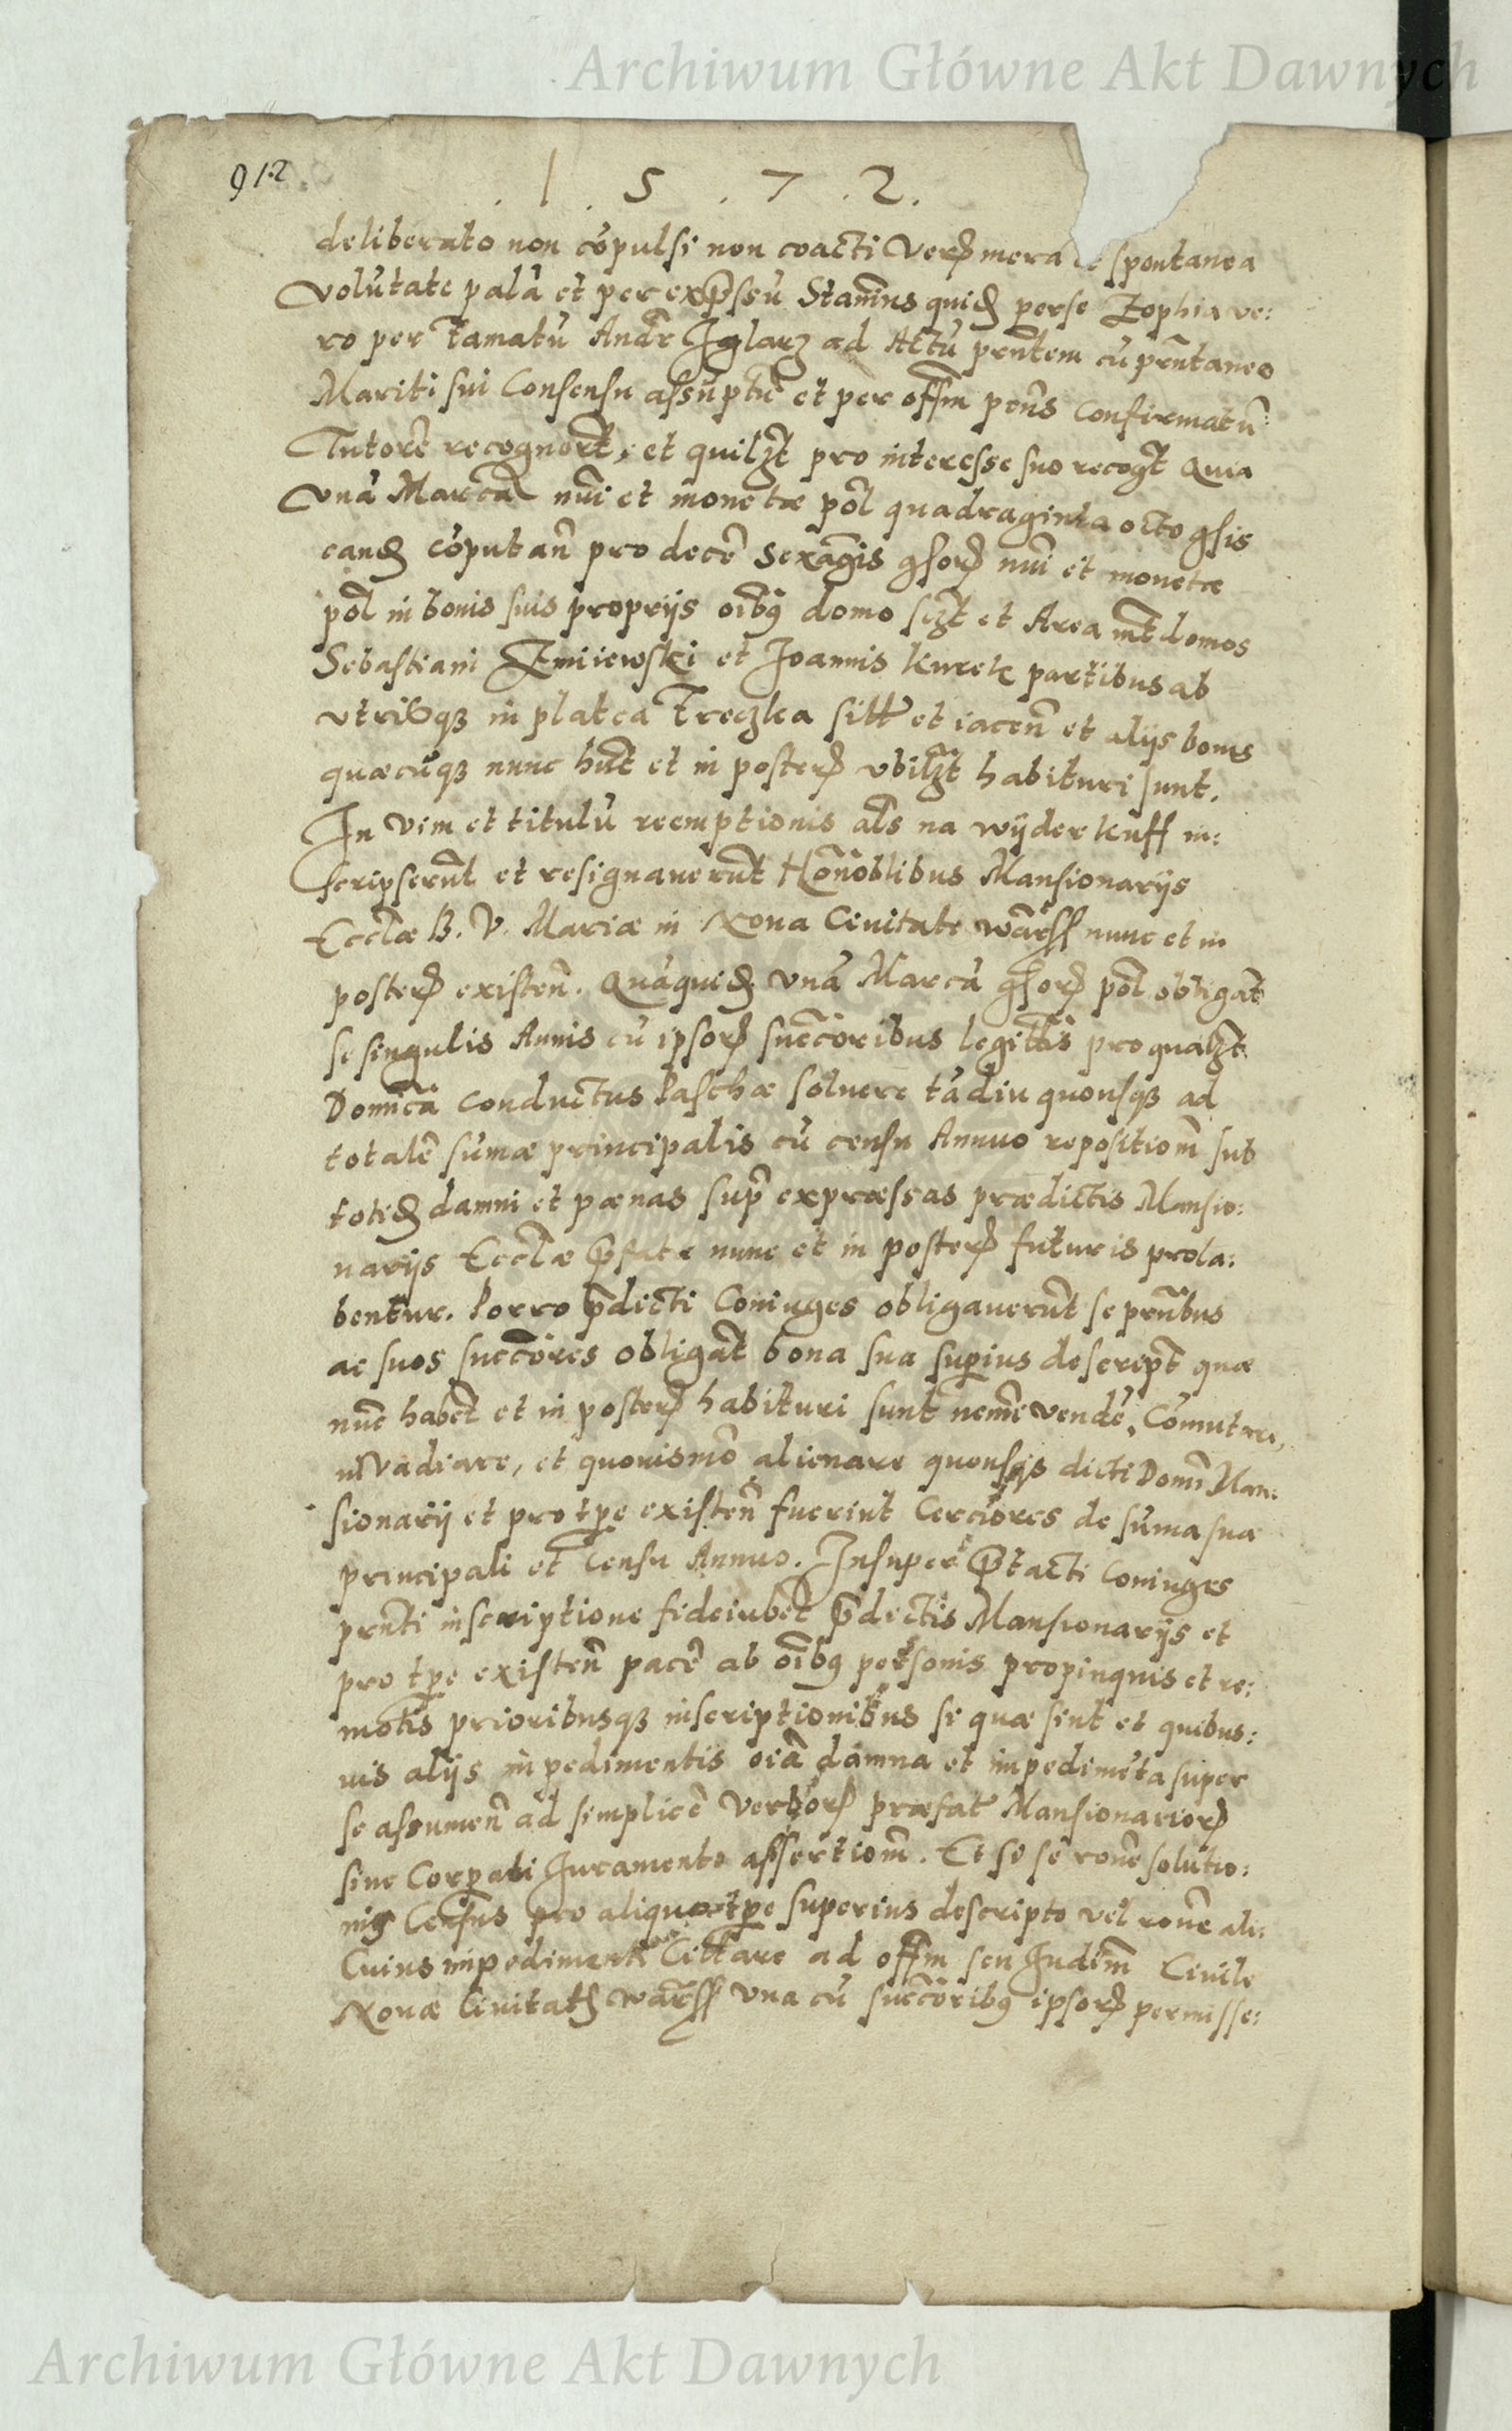 Archiwum Główne Akt Dawnych
912
. 1 . 5 . 7 . 2 .
deliberato non cōpulsi non coacti Verꝝ mera spontanea
Volūtate palā et per exp̄ssū Stan̄ius quidꝫ perse Zophia ve:
ro per famatū Andr̄ Jglarz ad Actū prn̄tem cū prn̄taneo
Mariti sui Consensu assūptū et per offm̄ pen̄s Confirmatū
Tutorē recognorūt, et quilꝫt pro interesse suo recogt̄ Quia
Vnā Marcā nūi et monetæ pol̄ quadraginta octo gſis
eandꝫ cōputan̄ pro decē sexagīs gſorꝝ nūi et monetæ
pol̄ in bonis suis proprijs oībꝰ domo sꝫt et Area int̄ domos
Sebastiani Zmiiewski et Joannis Kurek partibus ab
vtriqꝫ in platea Freczka sitt̄ et iacen̄ et alijs bonis
quæcūqꝫ nunc hūt et in posterꝝ vbilꝫt habituri sunt.
In Vim et titulū reemptionis als̄ na wÿderkuff in:
scripserūt et resignauerūt Honōblibus Mansionarijs
Eccl̄æ B. V. Mariæ in Noua Ciuitate Warſſ nunc et in
posterꝝ existen̄. Quāquidꝫ vnā Marcā gſorꝝ pol̄ obligāt
se singulis Annis cū ipsorꝝ succ̄oribus legittīs pro qualꝫt
Domīca Conductus Paschæ soluere tādiu quousqꝫ ad
totalē sūmæ principalis cū censu Annuo repositiom̄ sub
totidꝫ damni et pænas supr̄ expræssas prædictis Mansio:
narijs Eccl̄æ p̄fatæ nunc et in posterꝝ futuris prola:
bentur. Porro p̄dicti Coniuges obligauerūt se prn̄tibus
ac suos succ̄ores obligāt bona sua supius descript̄ quæ
nūc habēt et in posterꝝ habituri sunt nemīē vendē, Cōmutare,
inVadiare, et quouismō alienare quousqꝫ dicti Domī Man:
sionarij et pro tpe existen̄ fuerint Cerciores de sūma sua
principali et Censu Annuo. Insuper p̄tacti Coniuges
prn̄ti inscriptione fideiubēt p̄dictis Mansionarijs et
pro tpe existen̄ pacē ab oībꝰ personis propinquis et re:
motis prioribusqꝫ inscriptionibus si quæ sint et quibus:
uis alijs inpedimentis oīa damna et inpedimēta super
se assumen̄ ad simplicē Verborꝝ præfat̄ Mansionariorꝝ
sine Corpali Juramento assertiom̄. Et si sē ronē solutio:
nis Census pro aliquo tpe superius descripto vel ronē ali:
Cuius inpedimenti Cittare ad offm̄ seu Judicm̄ Ciuile
Nouæ Ciuitatꝭ Warſſ vna cū succ̄oribꝰ ipsorꝝ permisse:
Archiwum Główne Akt Dawnych